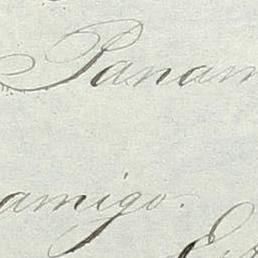 Panam
amigo.